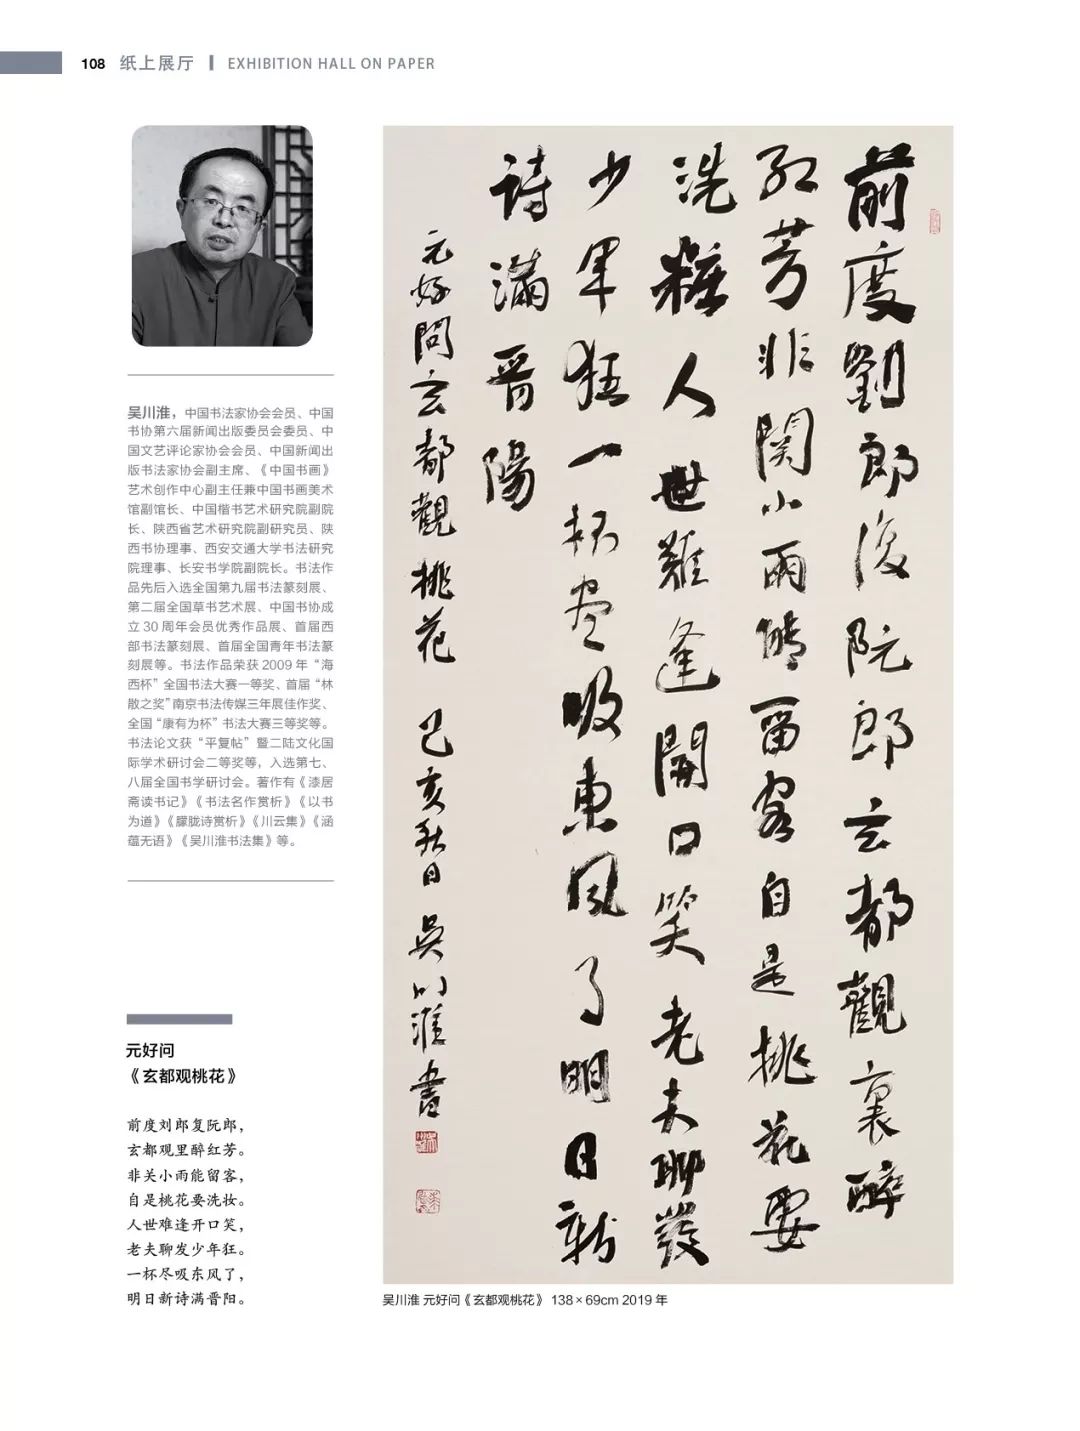 108 纸上展厅 | EXHIBITION HALL ON PAPER
吴川淮，中国书法家协会会员、中国
书协第六届新闻出版委员会委员、中
国文艺评论家协会会员、中国新闻出
版书法家协会副主席、《中国书画》
艺术创作中心副主任兼中国书画美术
馆副馆长、中国楷书艺术研究院副院
长、陕西省艺术研究院副研究员、陕
西书协理事、西安交通大学书法研究
院理事、长安书学院副院长。书法作
品先后入选全国第九届书法篆刻展、
第二届全国草书艺术展、中国书协成
立 30 周年会员优秀作品展、首届西
部书法篆刻展、首届全国青年书法篆
刻展等。书法作品荣获 2009 年“海
西杯”全国书法大赛一等奖、首届“林
散之奖”南京书法传媒三年展佳作奖、
全国“康有为杯”书法大赛三等奖等。
书法论文获“平复帖”暨二陆文化国
际学术研讨会二等奖等，入选第七、
八届全国书学研讨会。著作有《漆居
斋读书记》《书法名作赏析》《以书
为道》《朦胧诗赏析》《川云集》《涵
蕴无语》《吴川淮书法集》等。
元好问
《玄都观桃花》
前度刘郎复阮郎，
玄都观里醉红芳。
非关小雨能留客，
自是桃花要洗妆。
人世难逢开口笑，
老夫聊发少年狂。
一杯尽吸东风了，
明日新诗满晋阳。
前度劉郎復阮郎玄都觀裏醉
紅芳非関小雨能留客自是桃花要
洗糚人世難逢開口笑老夫聊發
少年狂一杯盡吸東風了明日新
詩滿晋陽
元好問玄都觀桃花 己亥秋日 吳川淮書
吴川淮 元好问《玄都观桃花》 138×69cm 2019 年